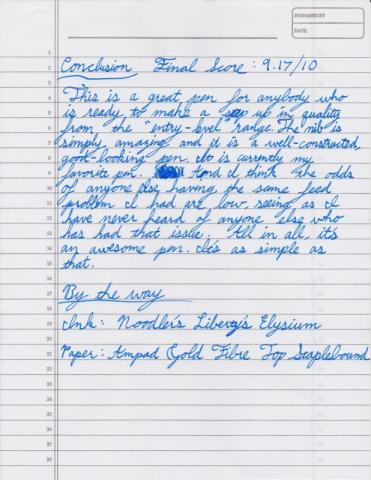 PROPARE/BY
DATE
Conclusion Final Score: 9.17/10
This is a great pen for anybody who
is ready to make a step up in quality
from the "entry-level" range. The nib is
simply amazing and it is a well-constructed,
good-looking pen. It is currently my
favorite pen. And I think the odds
of anyone else having the same feed
problem I had are low, seeing as I
have never heard of anyone else who
has had that issue. All in all, it's
an awesome pen. It's as simple as
that.
By the way
Ink: Noodler's Liberty's Elysium
Paper: Ampad Gold Fibre Top Staplebound